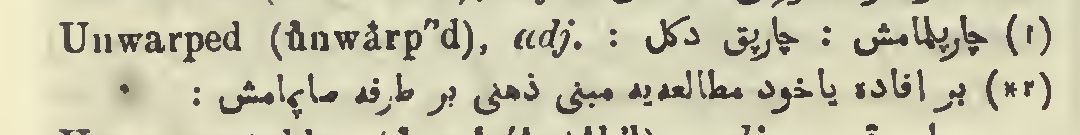 Unwarped (ŭnwårp″d), adj. : (١) چارپلمامش : چارپق دكل
(*٢) بر افاده ياخود مطالعه‌يه مبنى ذهنى بر طرفه صاپمامش :